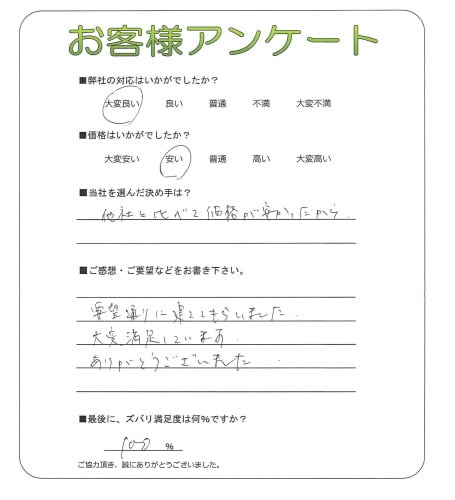 お客様アンケート
■弊社の対応はいかがでしたか?
大変良い 良い 普通 不満 大変不満
■価格はいかがでしたか?
大変安い 安い 普通 高い 大変高い
■当社を選んだ決め手は?
他社と比べて価格が安かったから.
■ご感想・ご要望などをお書き下さい。
要望通りに建ててもらいました.
大変満足しています.
ありがとうございました.
■最後に、ズバリ満足度は何%ですか?
100 %
ご協力頂き、誠にありがとうございました。